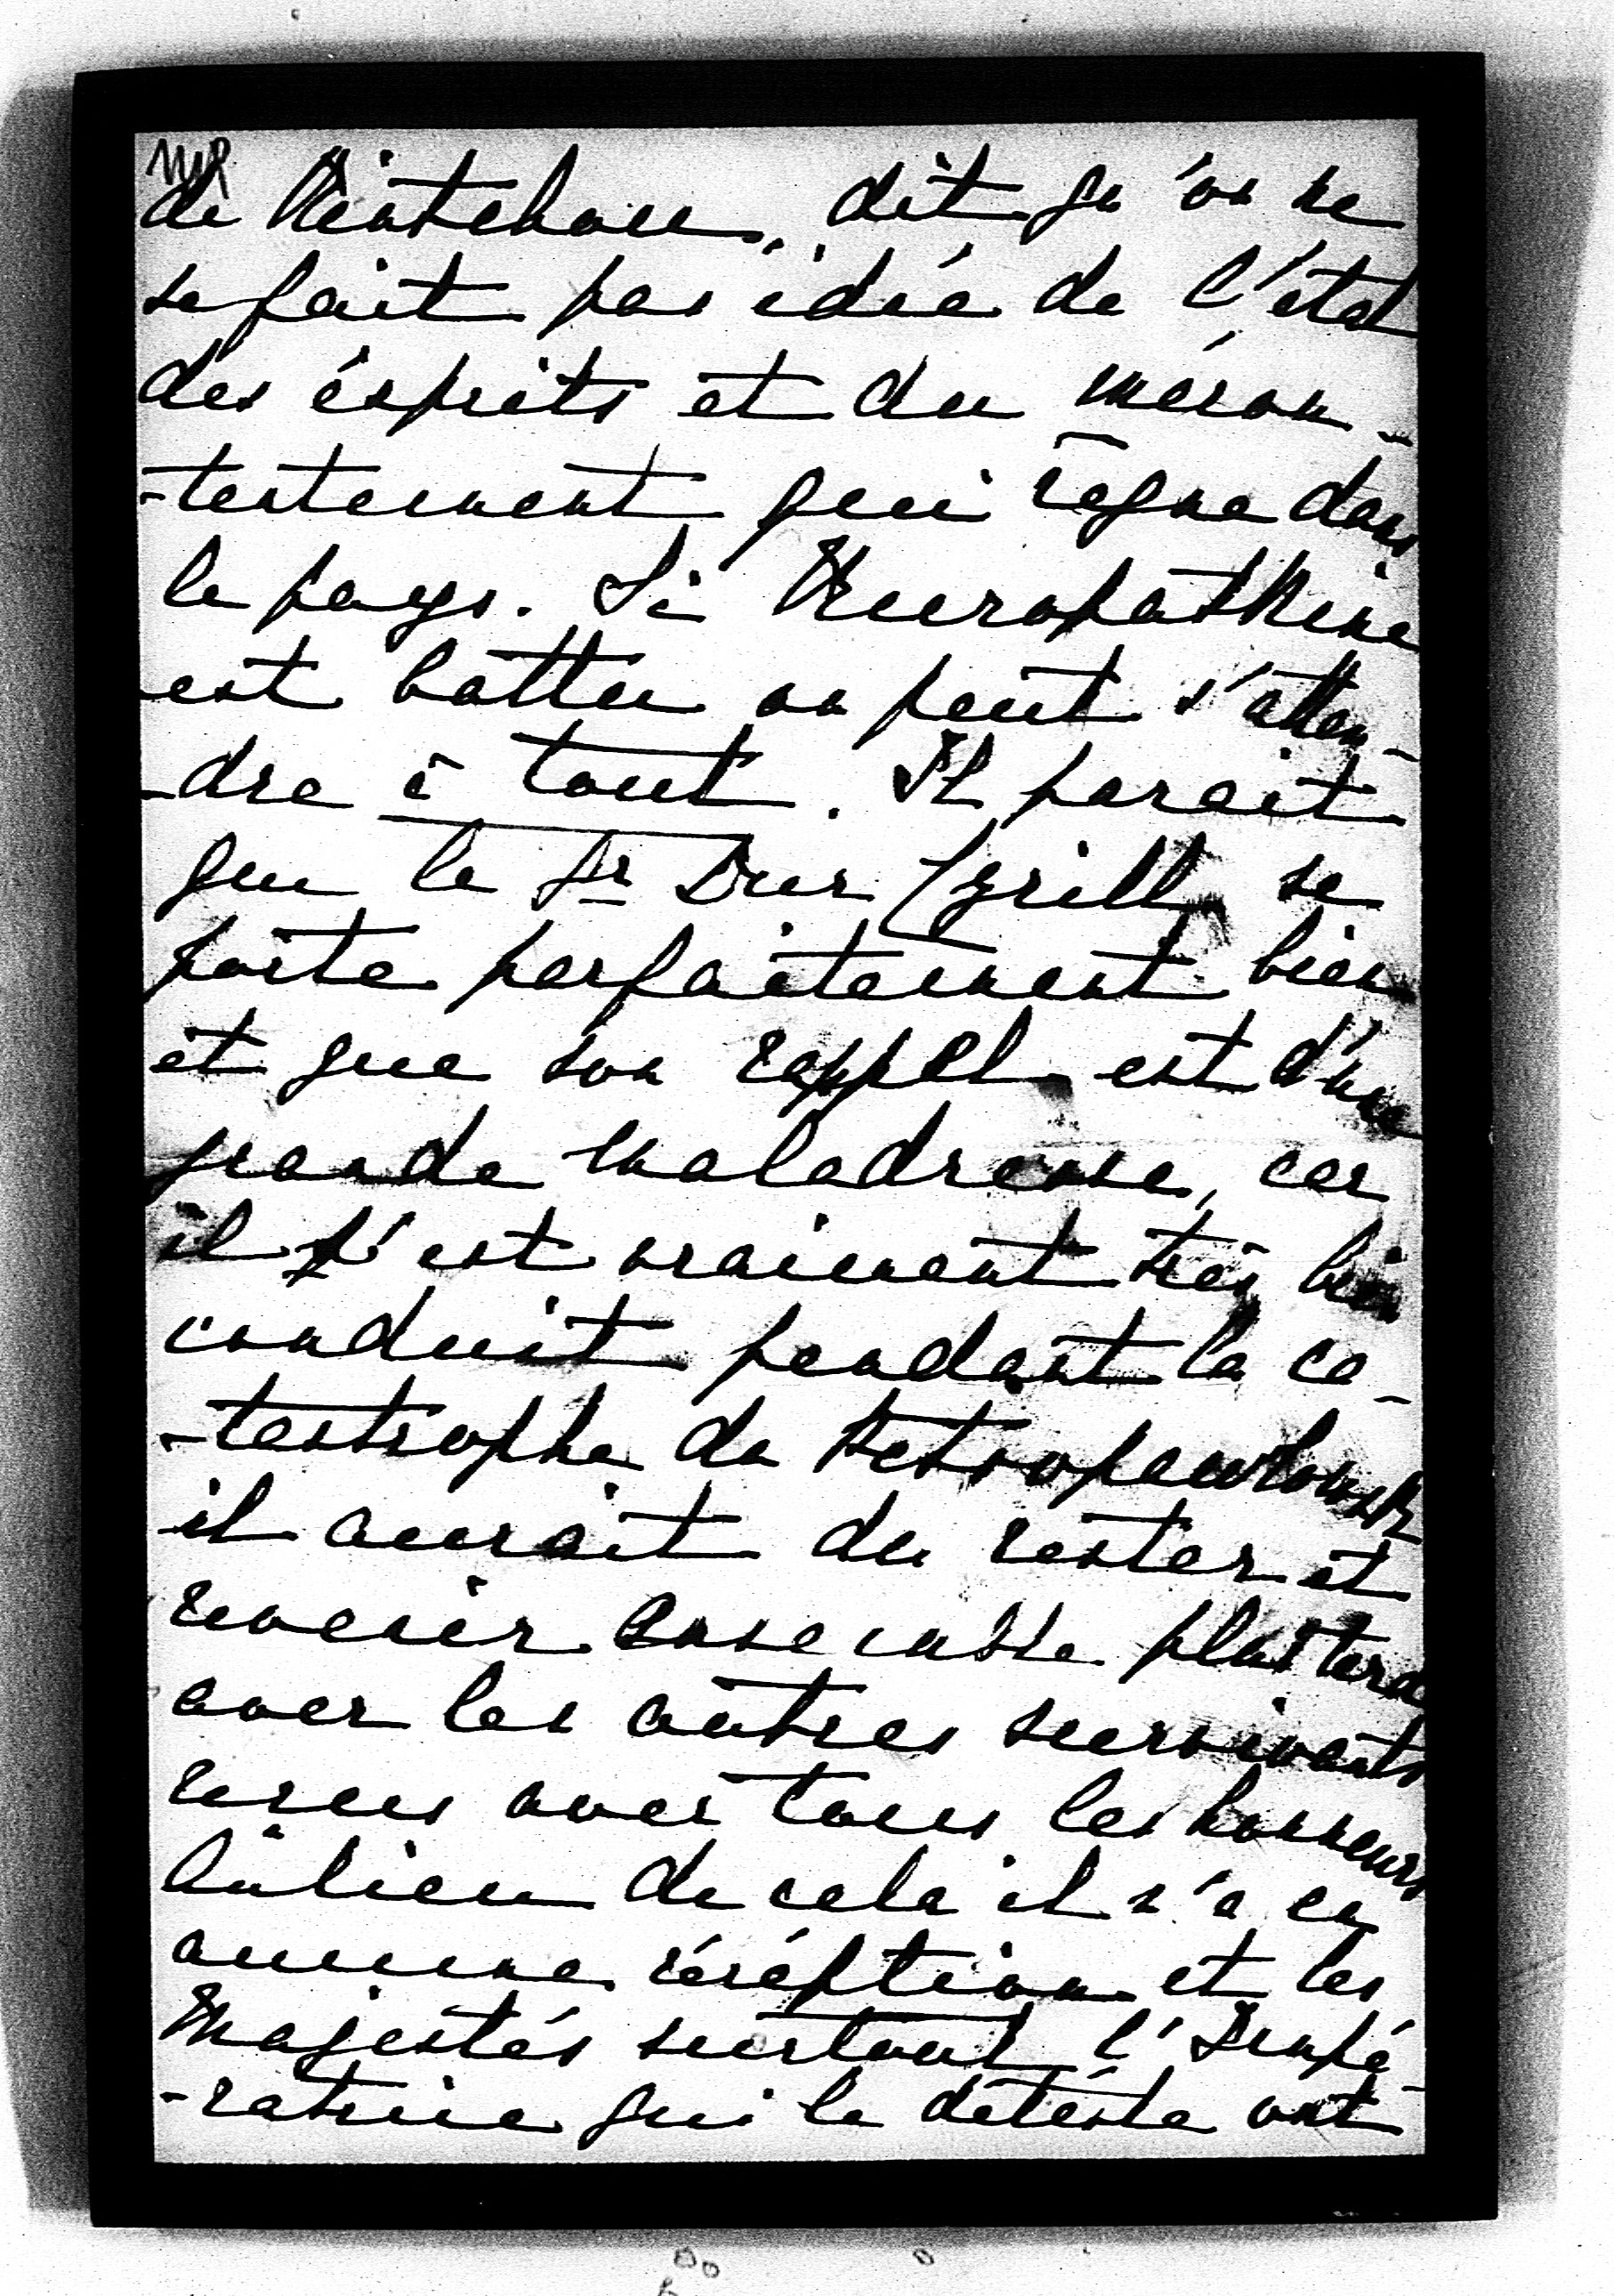 de Kintchou, dit qu'on ne
se fait pas idée de l'état
des ésprits et du mécon-
-tentement qui règne dans
le pays. Si Kuropatkine
est battu on peut s'atten-
-dre à tout. Il parait
que le Gr Duc Cyrill se
porte parfaitement bien
et que son rappel est d'une
grande maladresse, car
il s'est vraiment très bien
conduit pendant la ca-
-tastrophe du Petropawlowsk
il aurait du rester et
revenir ensemble plus tard
avec les autres survivants
recus avec tous les honneurs
Aulieu de cela il n'a eu
aucune récéption et les
Majestés surtout l'Impé-
-ratrice qui le detéste ont